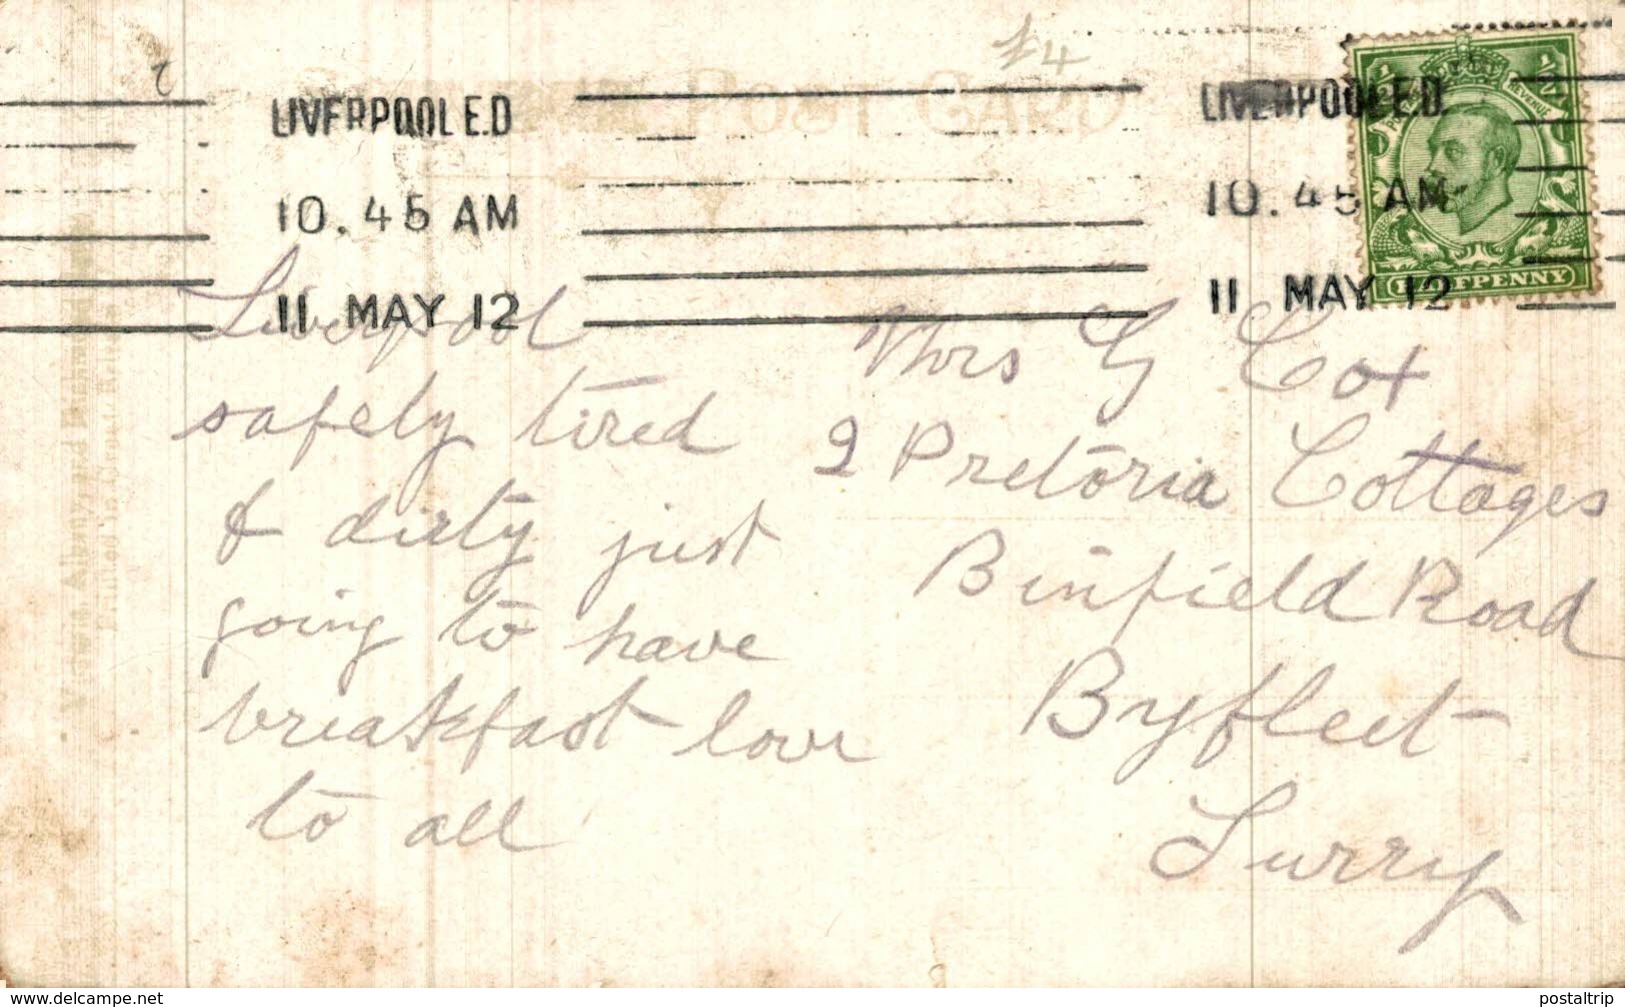 £4
POST CARD
LIVERPOOL E.D
10.45 AM
11 MAY 12
LIVERPOOL E.D.
10.45 AM
11 MAY 12
POSTAGE REVENUE
HALFPENNY
Liverpool
safely tired
& dirty just
going to have
breakfast love
to all
Mrs G Cox
2 Pretoria Cottages
Binfield Road
Byfleet
Surry
www.delcampe.net
postaltrip